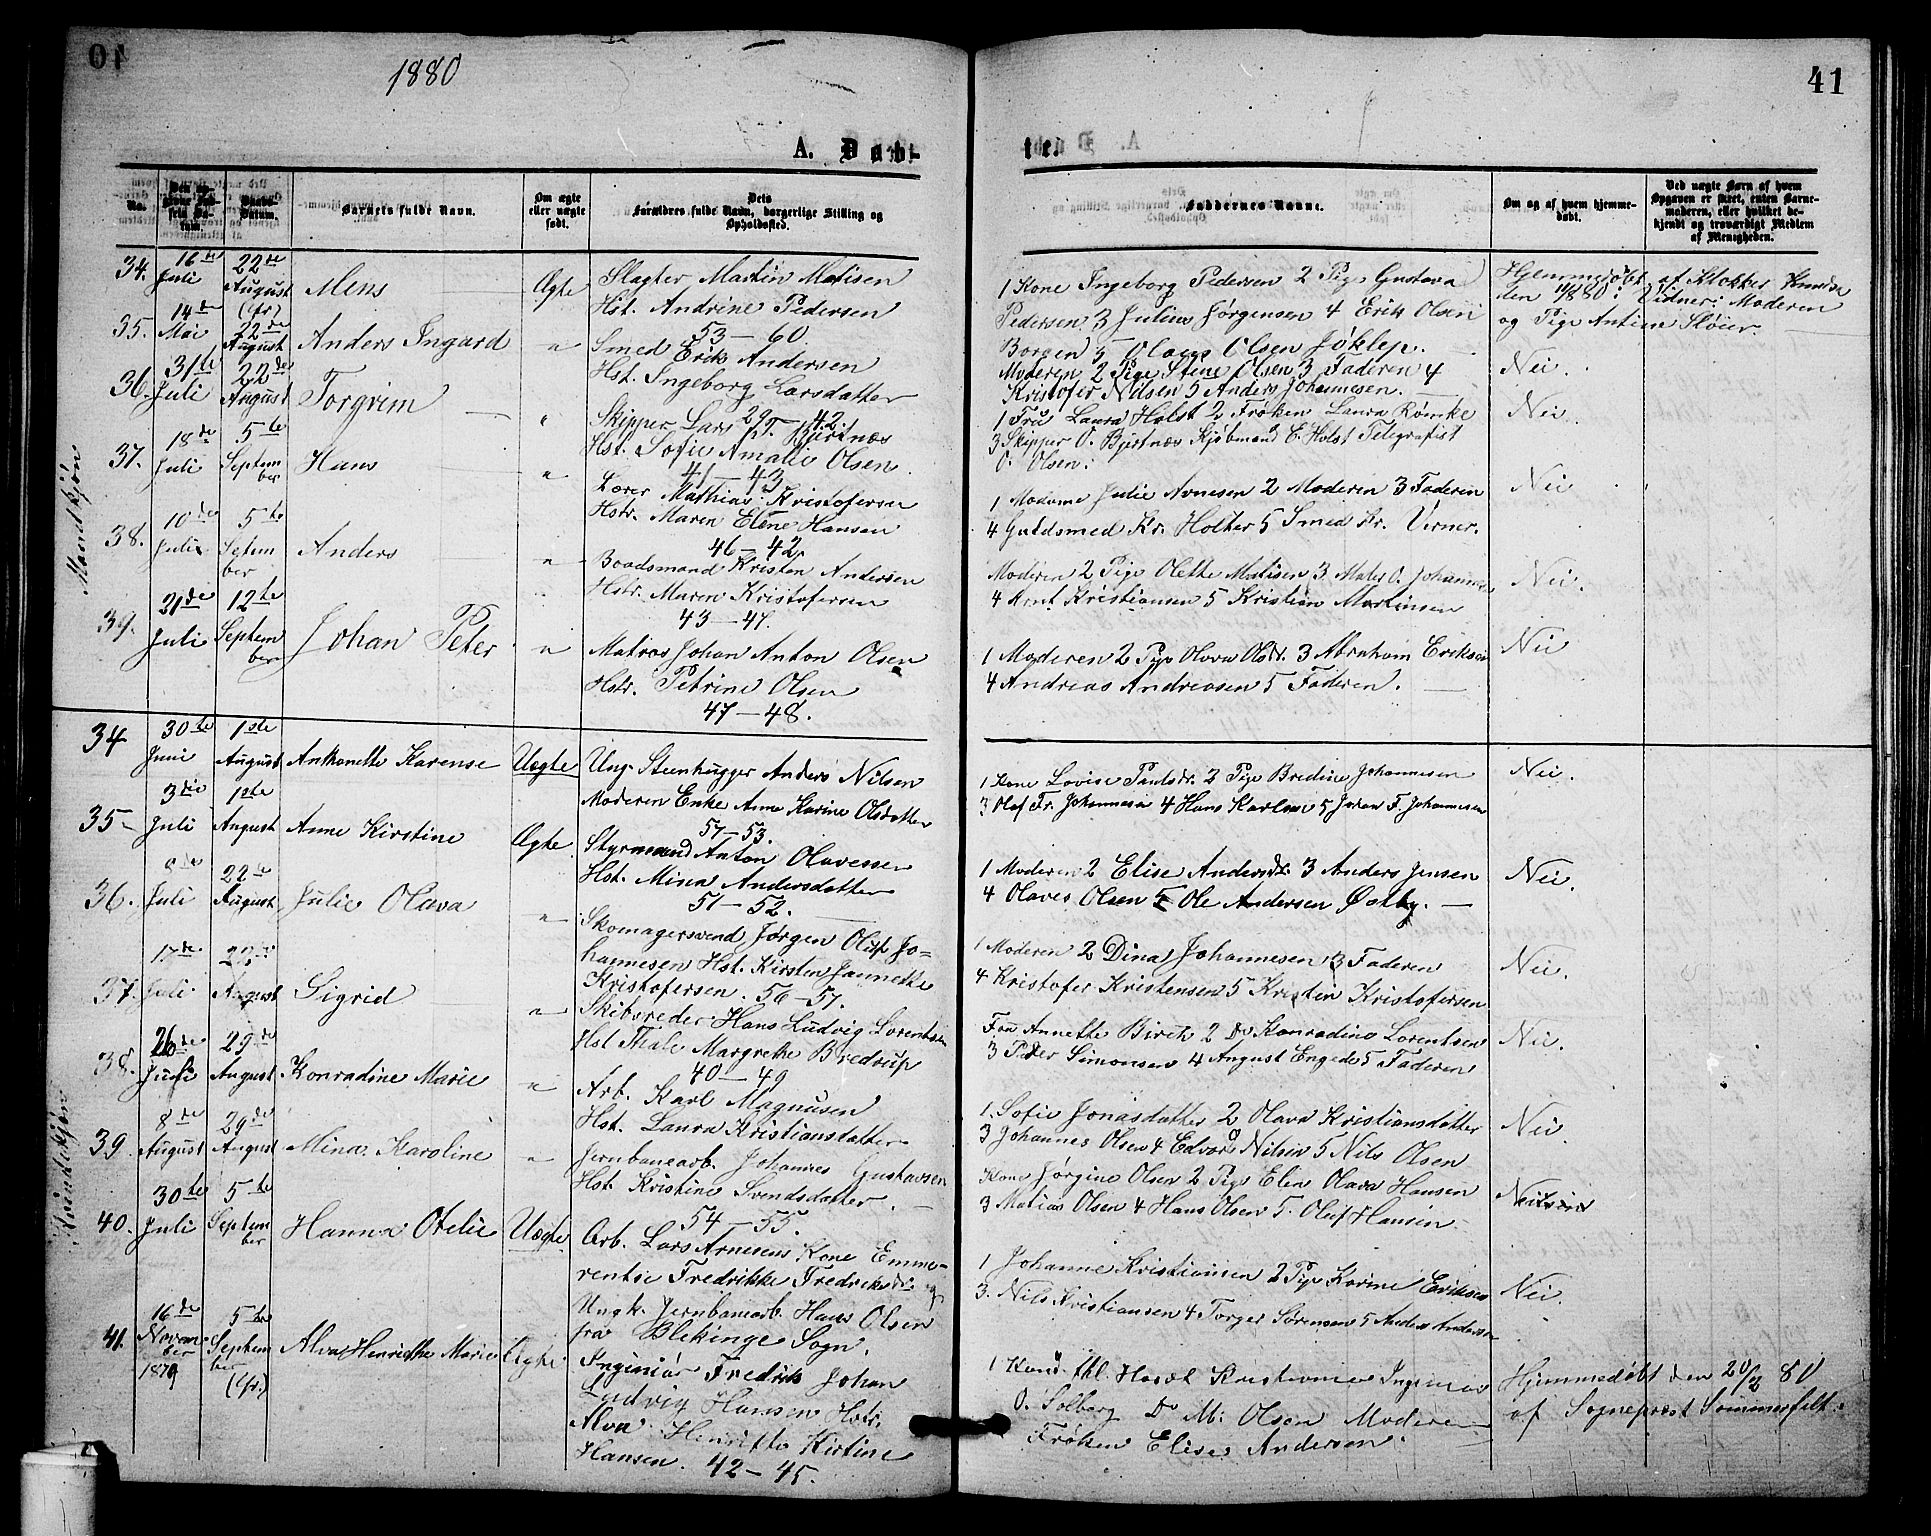 1880
41
A. Døb-
te.
No.
Barnets fulde Navn.
Om ægte eller uægte født.
Dets Forældres fulde Navn, borgerlige Stilling og Opholdssted.
Faddernes Navne.
Om og af hvem hjemmedøbt.
Ved uægte Børn af hvem Opgaven er skeet, enten Barnemoderen, eller hvilket bekjendt og troværdigt Medlem af Menigheden.
Mandkjøn
34. 16de Juli 22de August (fr) Mens Ægte Slagter Martin Matisen
Hst. Andrine Pedersen
53-60
1 Kone Ingeborg Pedersen 2 Pige Gustava
Pedersen 3 Julius Jørgensen 4 Erik Olsen
Borgen 5 Olaves Olsen Jøklep.
Hjemmedøbt af Klokker Knudsen
den 11/8 80: Vidner: Moderen
og Pige Antine Sløier
35. 14de Mai 22de August Anders Ingard " Smed Erik Andersen
Hst. Ingeborg Larsdatter
29-42.
Moderen 2 Pige Stene Olsen 3 Faderen 4
Kristofer Nilsen 5 Anders Johannesen.
Nei.
36. 31te Juli 22de August Torgrim " Skipper Lars T. Bjertnæs
Hst. Sofie Amalie Olsen.
41-43
1 Fru Laura Holst 2 Frøken Laura Rømcke
3 Skipper O. Bjertnæs Kjøbmand E. Holst Telegrafist
O. Olsen.
Nei.
37. 18de Juli 5te September Hans " Lærer Mathias Kristofersen
Hstr. Maren Elene Hansen
46-42.
1 Madame Julie Arnesen 2 Moderen 3 Faderen
4 Guldsmed Kr. Holter 5 Smed Fr. Verner.
Nei
38. 10de Juli 5te September Anders " Baadsmand Kristen Andersen
Hstr. Maren Kristofersen
43-47.
Moderen 2 Pige Olette Matisen 3 Mates O. Johannes
4 Arnt Kristiansen 5 Kristian Martinsen
Nei.
39. 21de Juli 12te September Johan Peter " Matros Johan Anton Olsen
Hstr. Petrine Olsen
47-48.
1 Moderen 2 Pige Olava Olsdr. 3 Abraham Eriksen
4 Andreas Andreasen 5 Faderen.
Nei
Kvindekjøn
34 30te Juni 1ste August Anthonette Karense Uægte Ung. Steenhugger Anders Nilsen
Moderen Enke Anne Karine Olsdatter
51-53.
1 Kone Lovise Paulsdr. 2 Pige Bredine Johannesen
3 Olaf Fr. Johannesen 4 Hans Karlsen 5 Johan F. Johannesen
Nei.
35 3die Juli 1ste August Anne Kirstine Ægte. Styrmand Anton Olavessen
Hst. Mina Andersdatter
51-52.
1 Moderen 2 Elise Andersdr. 3 Anders Jensen
4 Olaves Olsen 5 Ole Andersen Østby.
Nei.
36. Juli 22de August Julie Olava " Skomagersvend Jørgen Oluf Jo-
hannesen Hst. Kirsten Jannette
Kristofersen. 56-57.
1 Moderen 2 Dina Johannesen 3 Faderen
4 Kristofer Kristensen 5 Kristin Kristofersen
Nei.
37. 17de Juli 22de August Sigrid " Skibsreder Hans Ludvig Lorentsen
Hst Thale Margrethe Bredrup
40-49
Fru Annette Birch 2 Do Konradine Lorentsen
3 Peder Simonsen 4 August Engede 5 Faderen
Nei.
38. 26de Juni 29de August Konradine Marie " Arb. Karl Magnusen
Hst. Laura Kristiansdatter
1. Sofie Jonasdatter 2 Olava Kristiansdatter
3 Johannes Olsen 4 Edvard Nilsen 5 Nils Olsen
Nei.
39. 8de August 29de August Mina Karoline " Jernbanearb. Johannes Gustavsen
Hst. Kristine Svendsdatter.
54-55.
Kone Jørgine Olsen 2 Pige Elen Olava Hansen
3 Matias Olsen 4 Hans Olsen 5. Oluf Hansen
40. 30te Juli 5te September Hanna Otelie Uægte Arb. Lars Arnesens Kone Emme-
rentse Fredrikke Fredriksdr. og
Ungk. Jernbanearb. Hans Olsen
fra Blekinge Sogn.
1 Johanne Kristiansen 2 Pige Karine Eriksen
3. Nils Kristiansen 4 Torger Sørensen 5 Anders Andersen
Nei.
41. 16de November 1879 5te September (fr.) Alva Henriethe Marie Ægte. Ingeniør Fredrik Johan
Ludvig Hansen Hstr.
Alva Henriette Kirtine
Hansen. 42-45.
1 Kand. thl. Kristiane Ingeniør
O. Solberg Do M. Olsen Moderen
Frøken Elise Andersen.
Hjemmedøbt den 20/2 80
af Sogneprest Sommerfelt.